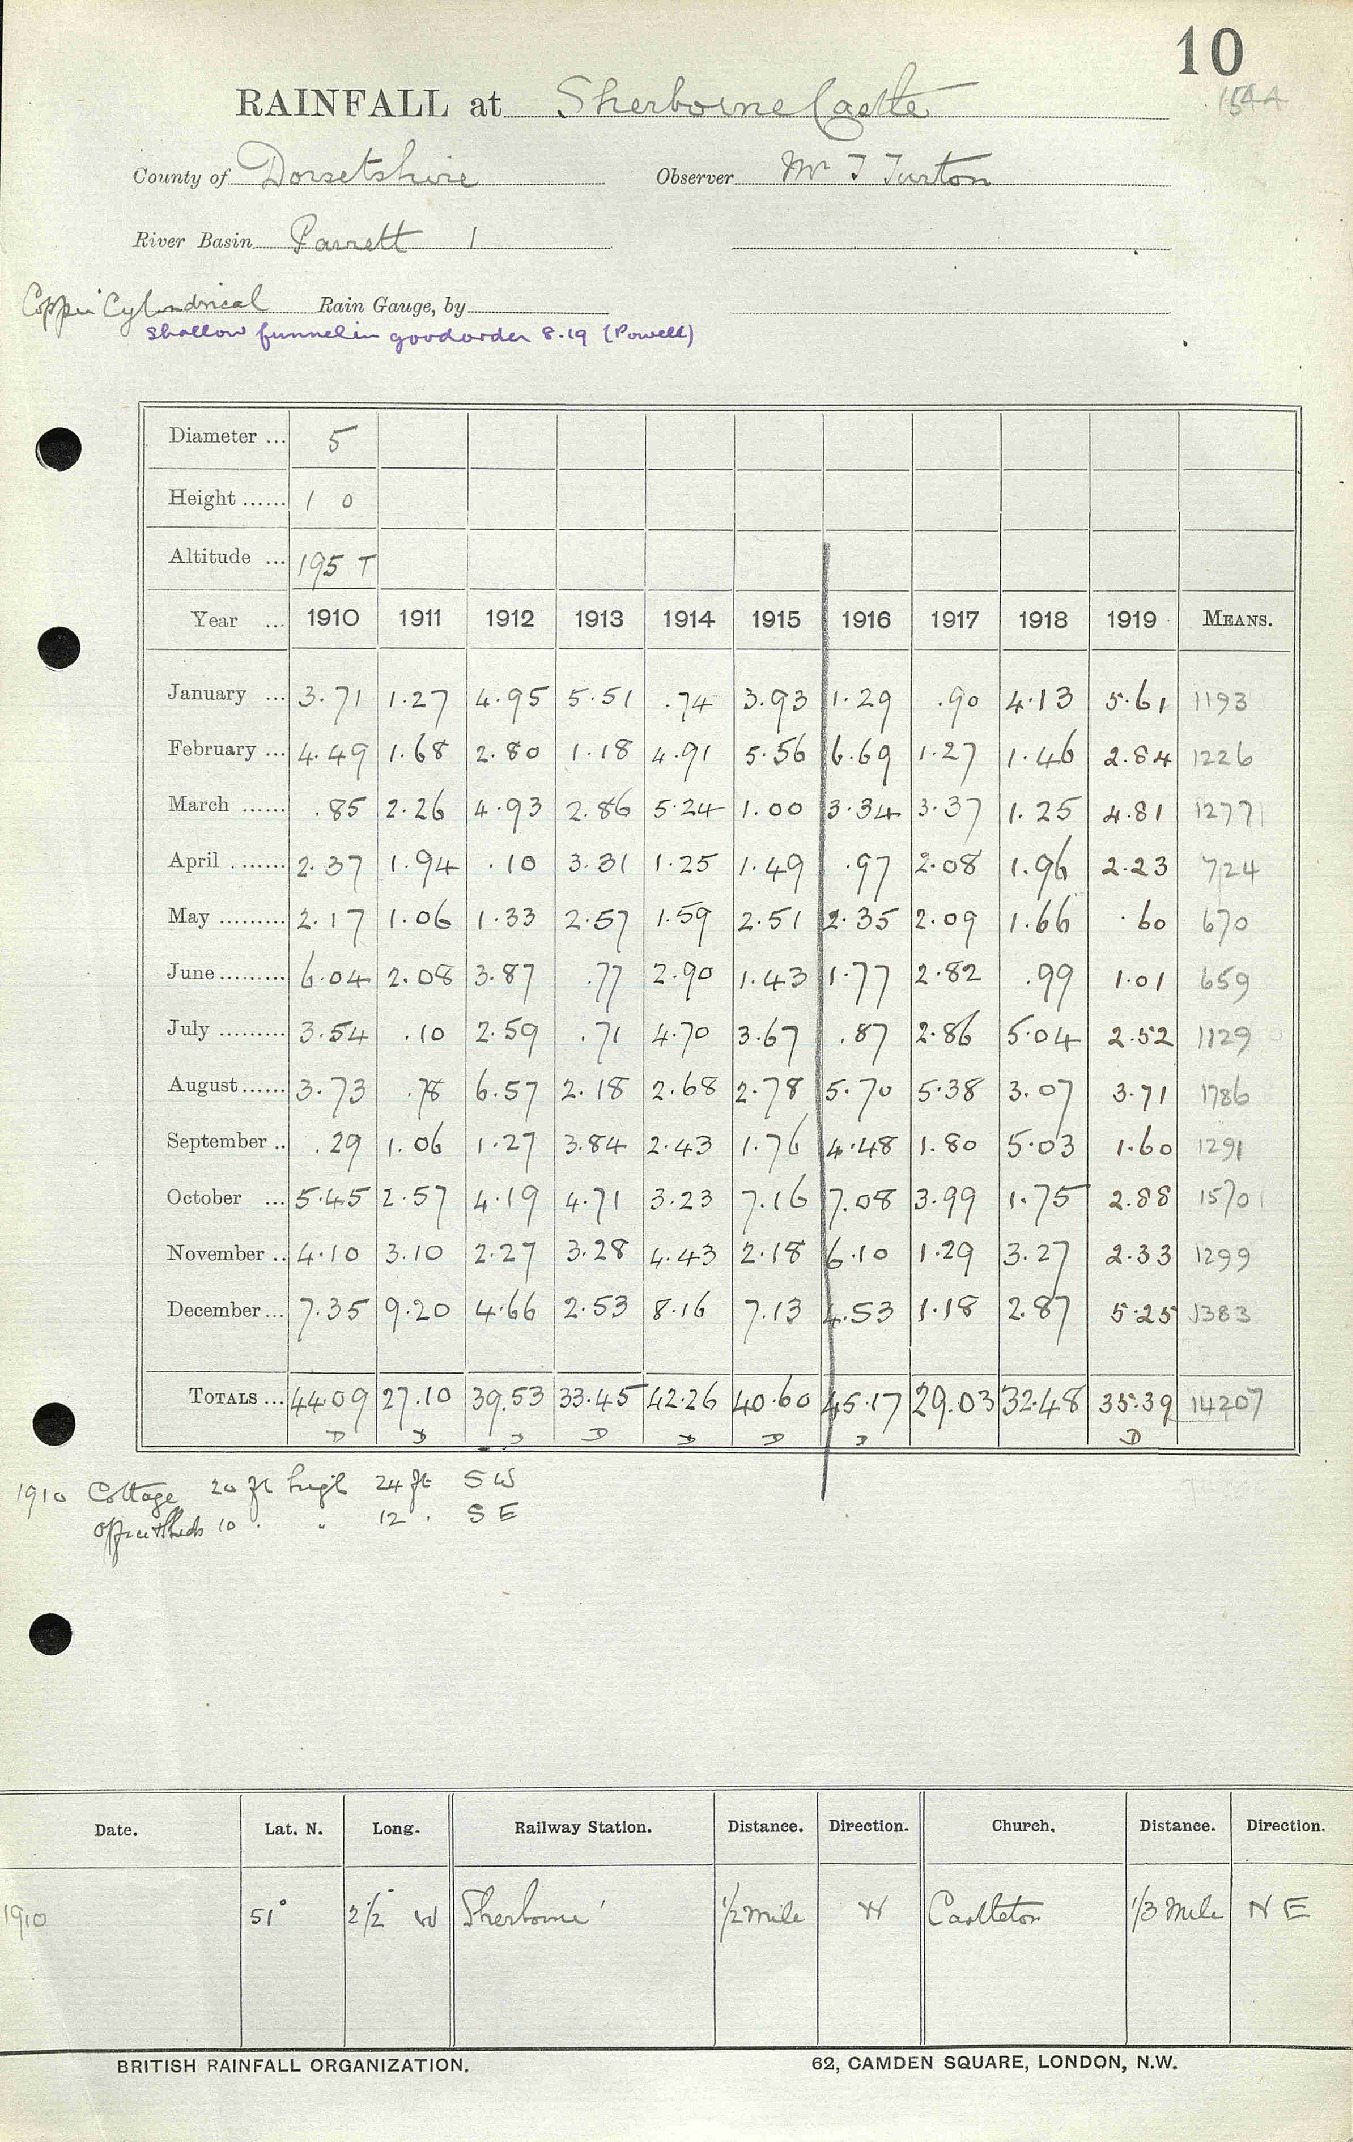 10
154A
RAINFALL at Sherborne Castle
County of Dorsetshire Observer Mr T Turton
River Basin Parrett 1
Copper Cylindrical Rain Gauge, by
Shallow funnel in good order 8.19 (Powell)
Diameter ... 5
Height ...... 1 0
Altitude ... 195 T
Year ... 1910 1911 1912 1913 1914 1915 1916 1917 1918 1919 MEANS.
January ... 3.71 1.27 4.95 5.51 .74 3.93 1.29 .90 4.13 5.61 1193
February ... 4.49 1.68 2.80 1.18 4.91 5.56 6.69 1.27 1.46 2.84 1226
March ...... .85 2.26 4.93 2.86 5.24 1.00 3.34 3.37 1.25 4.81 1277
April ....... 2.37 1.94 .10 3.31 1.25 1.49 .97 2.08 1.96 2.23 724
May ......... 2.17 1.06 1.33 2.57 1.59 2.51 2.35 2.09 1.66 .60 670
June ......... 6.04 2.08 3.87 .77 2.90 1.43 1.77 2.82 .99 1.01 659
July ......... 3.54 .10 2.59 .71 4.70 3.67 .87 2.86 5.04 2.52 1129
August ...... 3.73 .78 6.57 2.18 2.68 2.78 5.70 5.38 3.07 3.71 1786
September .. .29 1.06 1.27 3.84 2.43 1.76 4.48 1.80 5.03 1.60 1291
October ... 5.45 2.57 4.19 4.71 3.23 7.16 7.08 3.99 1.75 2.88 1570
November .. 4.10 3.10 2.27 3.28 4.43 2.18 6.10 1.29 3.27 2.33 1299
December ... 7.35 9.20 4.66 2.53 8.16 7.13 4.53 1.18 2.87 5.25 1383
TOTALS ... 44.09 27.10 39.53 33.45 42.26 40.60 45.17 29.03 32.48 35.39 14207
D D D D D D D D
1910 Cottage 20 ft high 24 ft SW
Office + Sheds 10 . " 12 . SE
Date. Lat. N. Long. Railway Station. Distance. Direction. Church. Distance. Direction.
1910 51° 2½° W Sherborne 1/2 mile W Castleton 1/3 Mile NE
BRITISH RAINFALL ORGANIZATION. 62, CAMDEN SQUARE, LONDON, N.W.